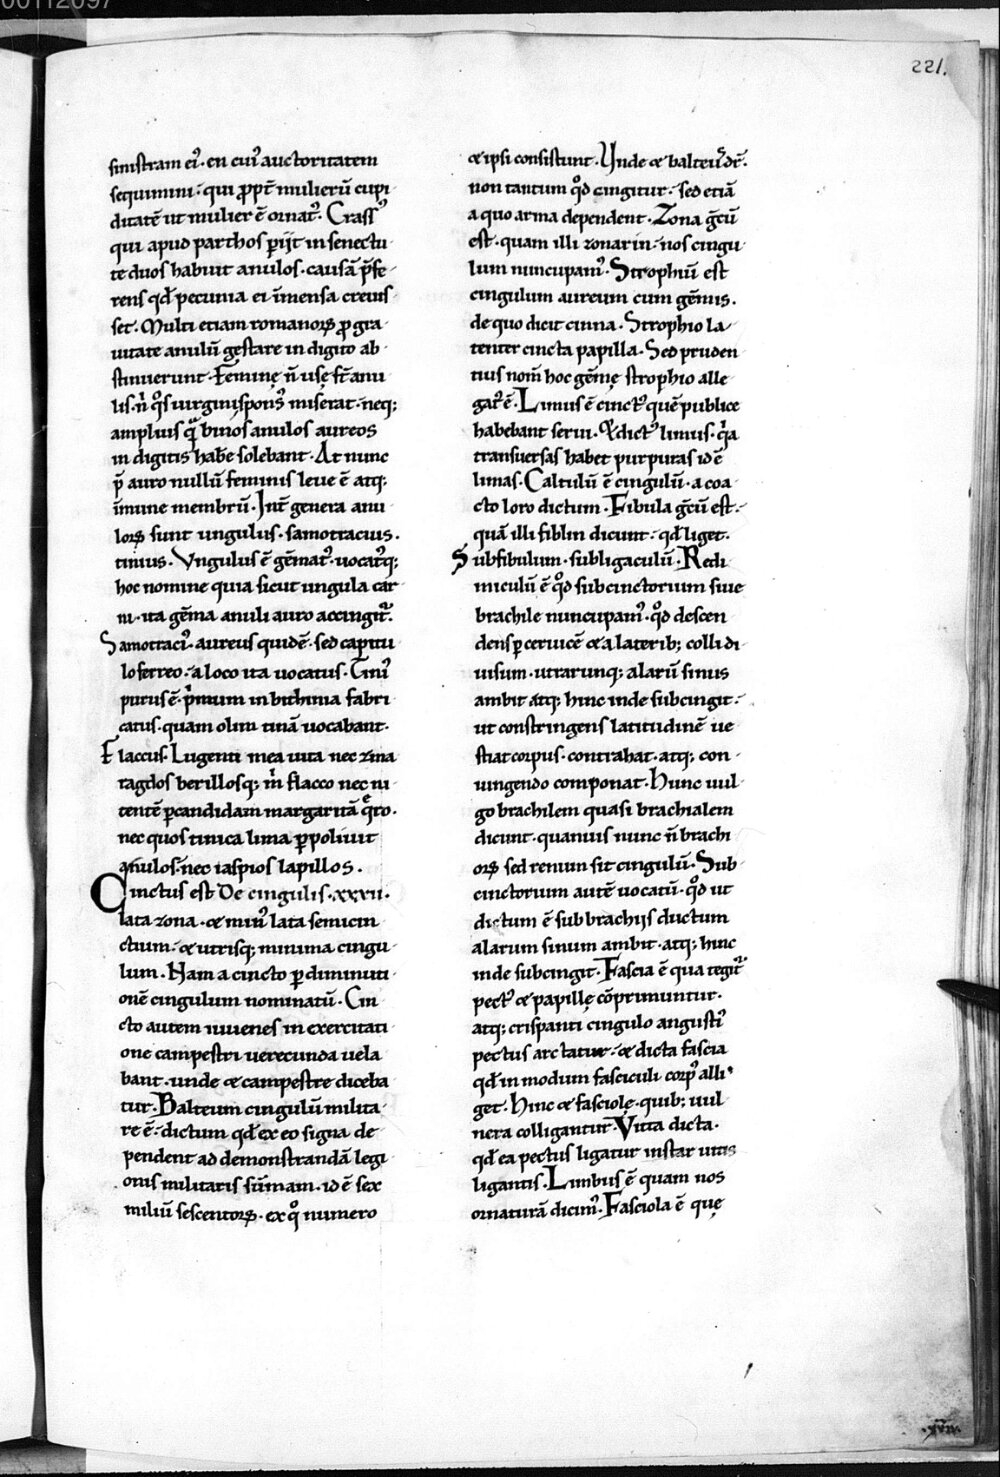 00112697
221.
sinistram ei᷒· en cui᷒ auctoritatem
sequimini· qui ꝓpt̄ mulierū cupi
ditatē ut mulier ē ornat᷒· Crass᷒
qui apud parthos ꝑijt in senectu
te duos habuit anulos· causā p̄fe
rens qđ pecunia ei īmensa creuis
set· Multi etiam romanoꝝ ꝓ gra
uitate anulū gestare in digito ab
stinuerunt· Feminę n̄ usę s̄t anu
lis· nͥ qͦs uirgini spons᷒ miserat· neq;
amplius qͣ̄ binos anulos aureos
in digitis hab̄e solebant· At nunc
p̄ auro nullū feminis leue ē atq;
īmune membrū· Int̄ genera anu
loꝝ sunt ungulus· samotracius·
tinius· Vngulus ē gēmat᷒· uocat᷒q;
hoc nomine quia sicut ungula car
ni· ita gēma anuli auro accingit᷑·
Samotraci᷒· aureus quidē· sed capitu
lo ferreo· a loco ita uocatus· Tini᷒
purus ē· pͥmum in bithinia fabri
catus· quam olim tinā uocabant·
Flaccus· Lugenti mea uita nec zma
ragdos berillosq; mͥ flacco nec ni
tentē ꝑcandidam margaritā qͤro·
nec quos tinica lima ꝑpoliuit
anulos· nec iaspios lapillos·
Cinctus est De cingulis· xxxii·
lata zona· & min᷒ lata semicin
ctium· & utrisq; minima cingu
lum· Nam a cincto ꝑ diminuti
onē cingulum nominatū· Cin
cto autem iuuenes in exercitati
one campestri uerecunda uela
bant· unde & campestre diceba
tur· Balteum cingulū milita
re ē· dictum qđ ex eo signa de
pendent ad demonstrandā legi
onis militaris sūmam· id ē sex
miliū sescentoꝝ· ex qͦ numero
& ipsi consistunt· Vnde & balteu᷒ dr̄·
non tantum qͦd cingitur· sed etiā
a quo arma dependent· Zona gr̄cū
est· quam illi zonarin· nos cingu
lum nuncupam᷒· Strophiū est
cingulum aureum cum gēmis·
de quo dicit cinna· Strophio la
tenter cincta papilla· Sed pruden
tius nom̄ hoc gēmę strophio alle
gat᷑ ē· Limus ē cinct᷒ quē publice
habebant serui· & dict᷒ limus· qͣa
transuersas habet purpuras id ē
limas· Caltulū ē cingulū· a coa
cto loro dictum· Fibula gr̄cū est·
quā illi fiblin dicunt· qđ liget·
Subfibulum· subligaculū· Redi
miculū ē qͦd subcinctorium siue
brachile nuncupam᷒· qͦd descen
dens ꝑ ceruicē & a laterib; colli di
uisum· utrarunq; alarū sinus
ambit atq; hinc inde subcingit·
ut constringens latitudinē ue
stiat corpus· contrahat· atq; con
iungendo componat· Hunc uul
go brachilem quasi brachialem
dicunt· quamuis nunc n̄ brachi
oꝝ sed renum sit cingulū· Sub
cinctorium autē uocatū· qͦd ut
dictum ē sub brachijs ductum
alarum sinum ambit· atq; hinc
inde subcingit· Fascia ē qua tegit᷑
pect᷒ & papillę cōprimuntur·
atq; crispanti cingulo angusti᷒
pectus arctatur· & dicta fascia
qđ in modum fasciculi corp᷒ alli
get· Hinc & fasciolę· quib; uul
nera colligantur· Vitta dicta·
qđ ea pectus ligatur instar uitis
ligantis· Limbus ē quam nos
ornaturā dicim᷒· Fasciola ē quę